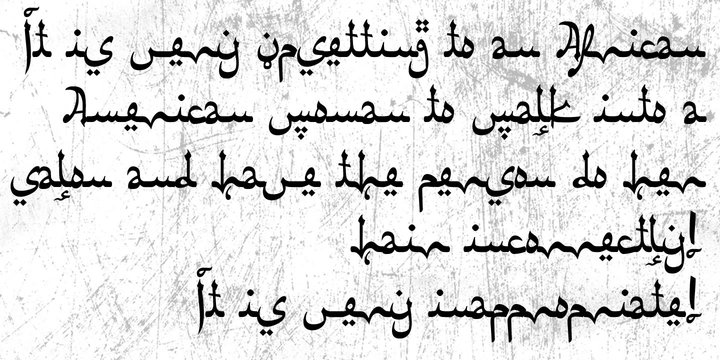 It is very upsetting to an African
American woman to walk into a
salon and have the person do her
hair incorrectly!
It is very inappropriate!